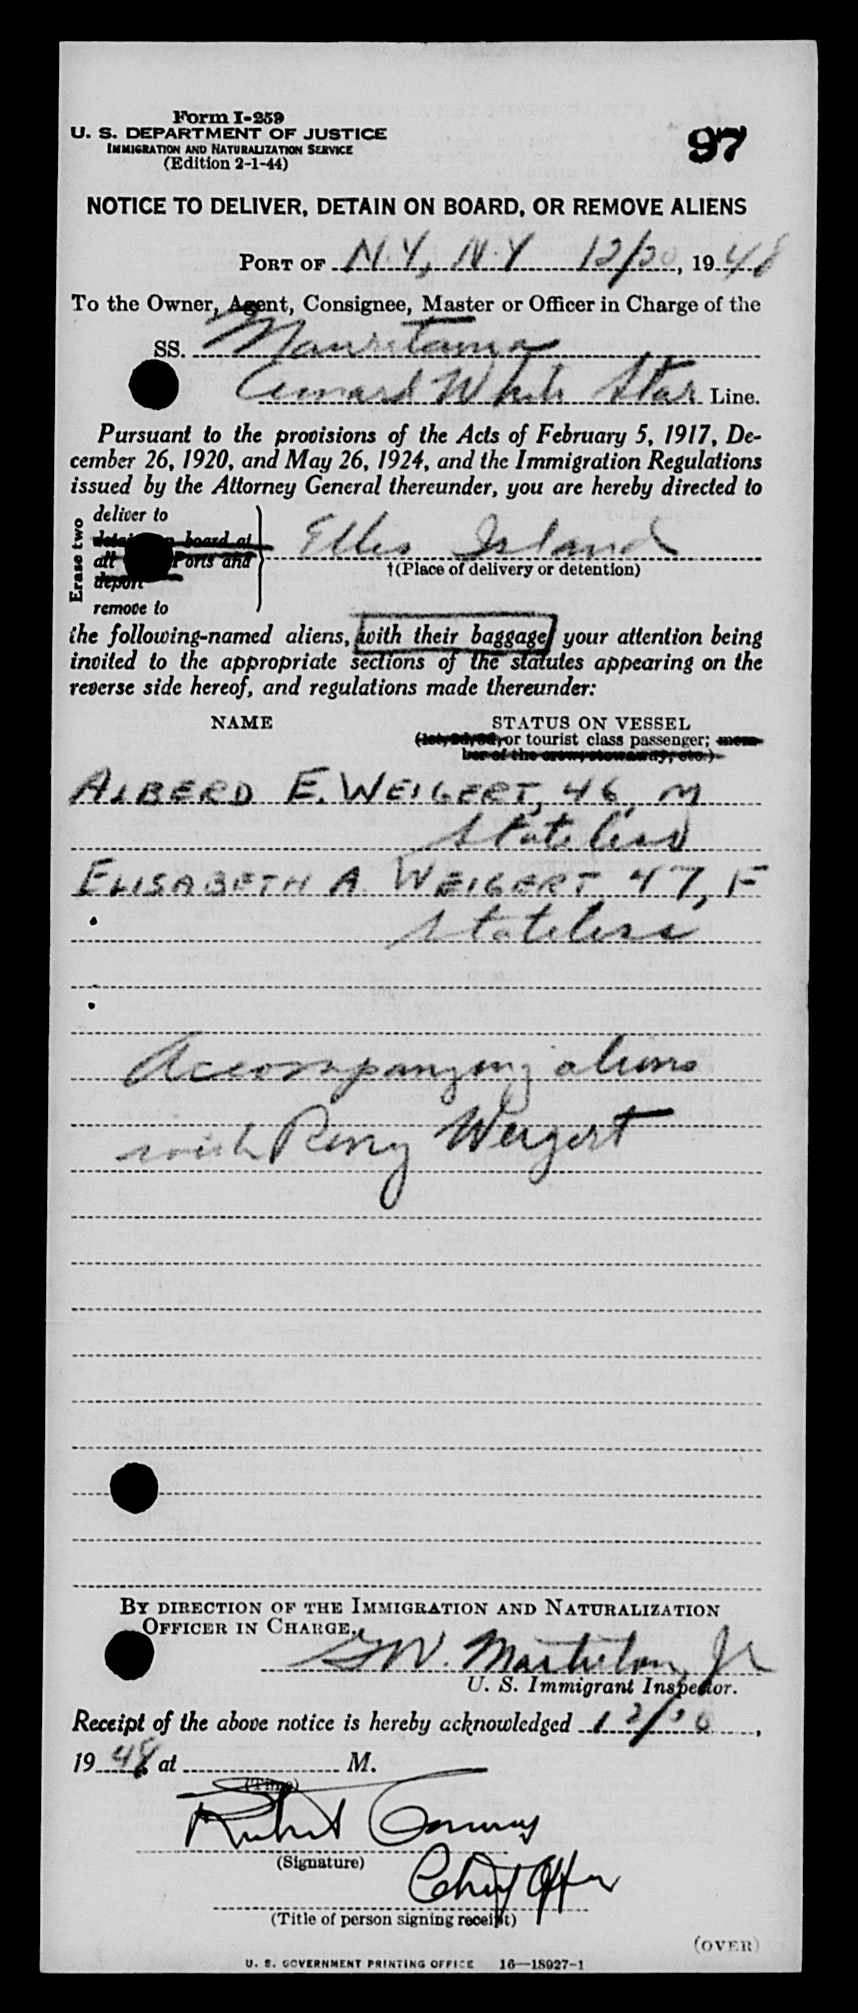 Form I-259
U. S. DEPARTMENT OF JUSTICE
IMMIGRATION AND NATURALIZATION SERVICE
(Edition 2-1-44)
97
NOTICE TO DELIVER, DETAIN ON BOARD, OR REMOVE ALIENS
PORT OF N.Y., N.Y 12/20, 1948
To the Owner, Agent, Consignee, Master or Officer in Charge of the
SS. Mauretania
Cunard White Star Line.
Pursuant to the provisions of the Acts of February 5, 1917, De-
cember 26, 1920, and May 26, 1924, and the Immigration Regulations
issued by the Attorney General thereunder, you are hereby directed to
Erase two
deliver to
board at
all Ports and
deport
remove to
Ellis Island
†(Place of delivery or detention)
the following-named aliens, with their baggage, your attention being
invited to the appropriate sections of the statutes appearing on the
reverse side hereof, and regulations made thereunder:
NAME STATUS ON VESSEL
or tourist class passenger; mem-
ber of the crew, stowaway, etc.)
ALBERD E. WEIGERT, 46, M
Stateless
ELISABETH A. WEIGERT 47, F
Stateless
Accompanying aliens
with Weigert
BY DIRECTION OF THE IMMIGRATION AND NATURALIZATION
OFFICER IN CHARGE.
Jr
U. S. Immigrant Inspector.
Receipt of the above notice is hereby acknowledged 12/20,
1948 at M.
(Time)
(Signature)
Chief Offer
(Title of person signing receipt)
(OVER)
U. S. GOVERNMENT PRINTING OFFICE 16—18927-1